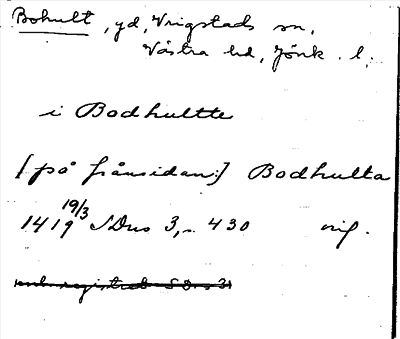 Bohult, yd, Vrigstads sn,
Västra hd, Jönk. l.
i Bodhultte
[på frånsidan:] Bodhulta
1419 19/3 SDns 3, s. 430 orig.
enl registret SDns 3